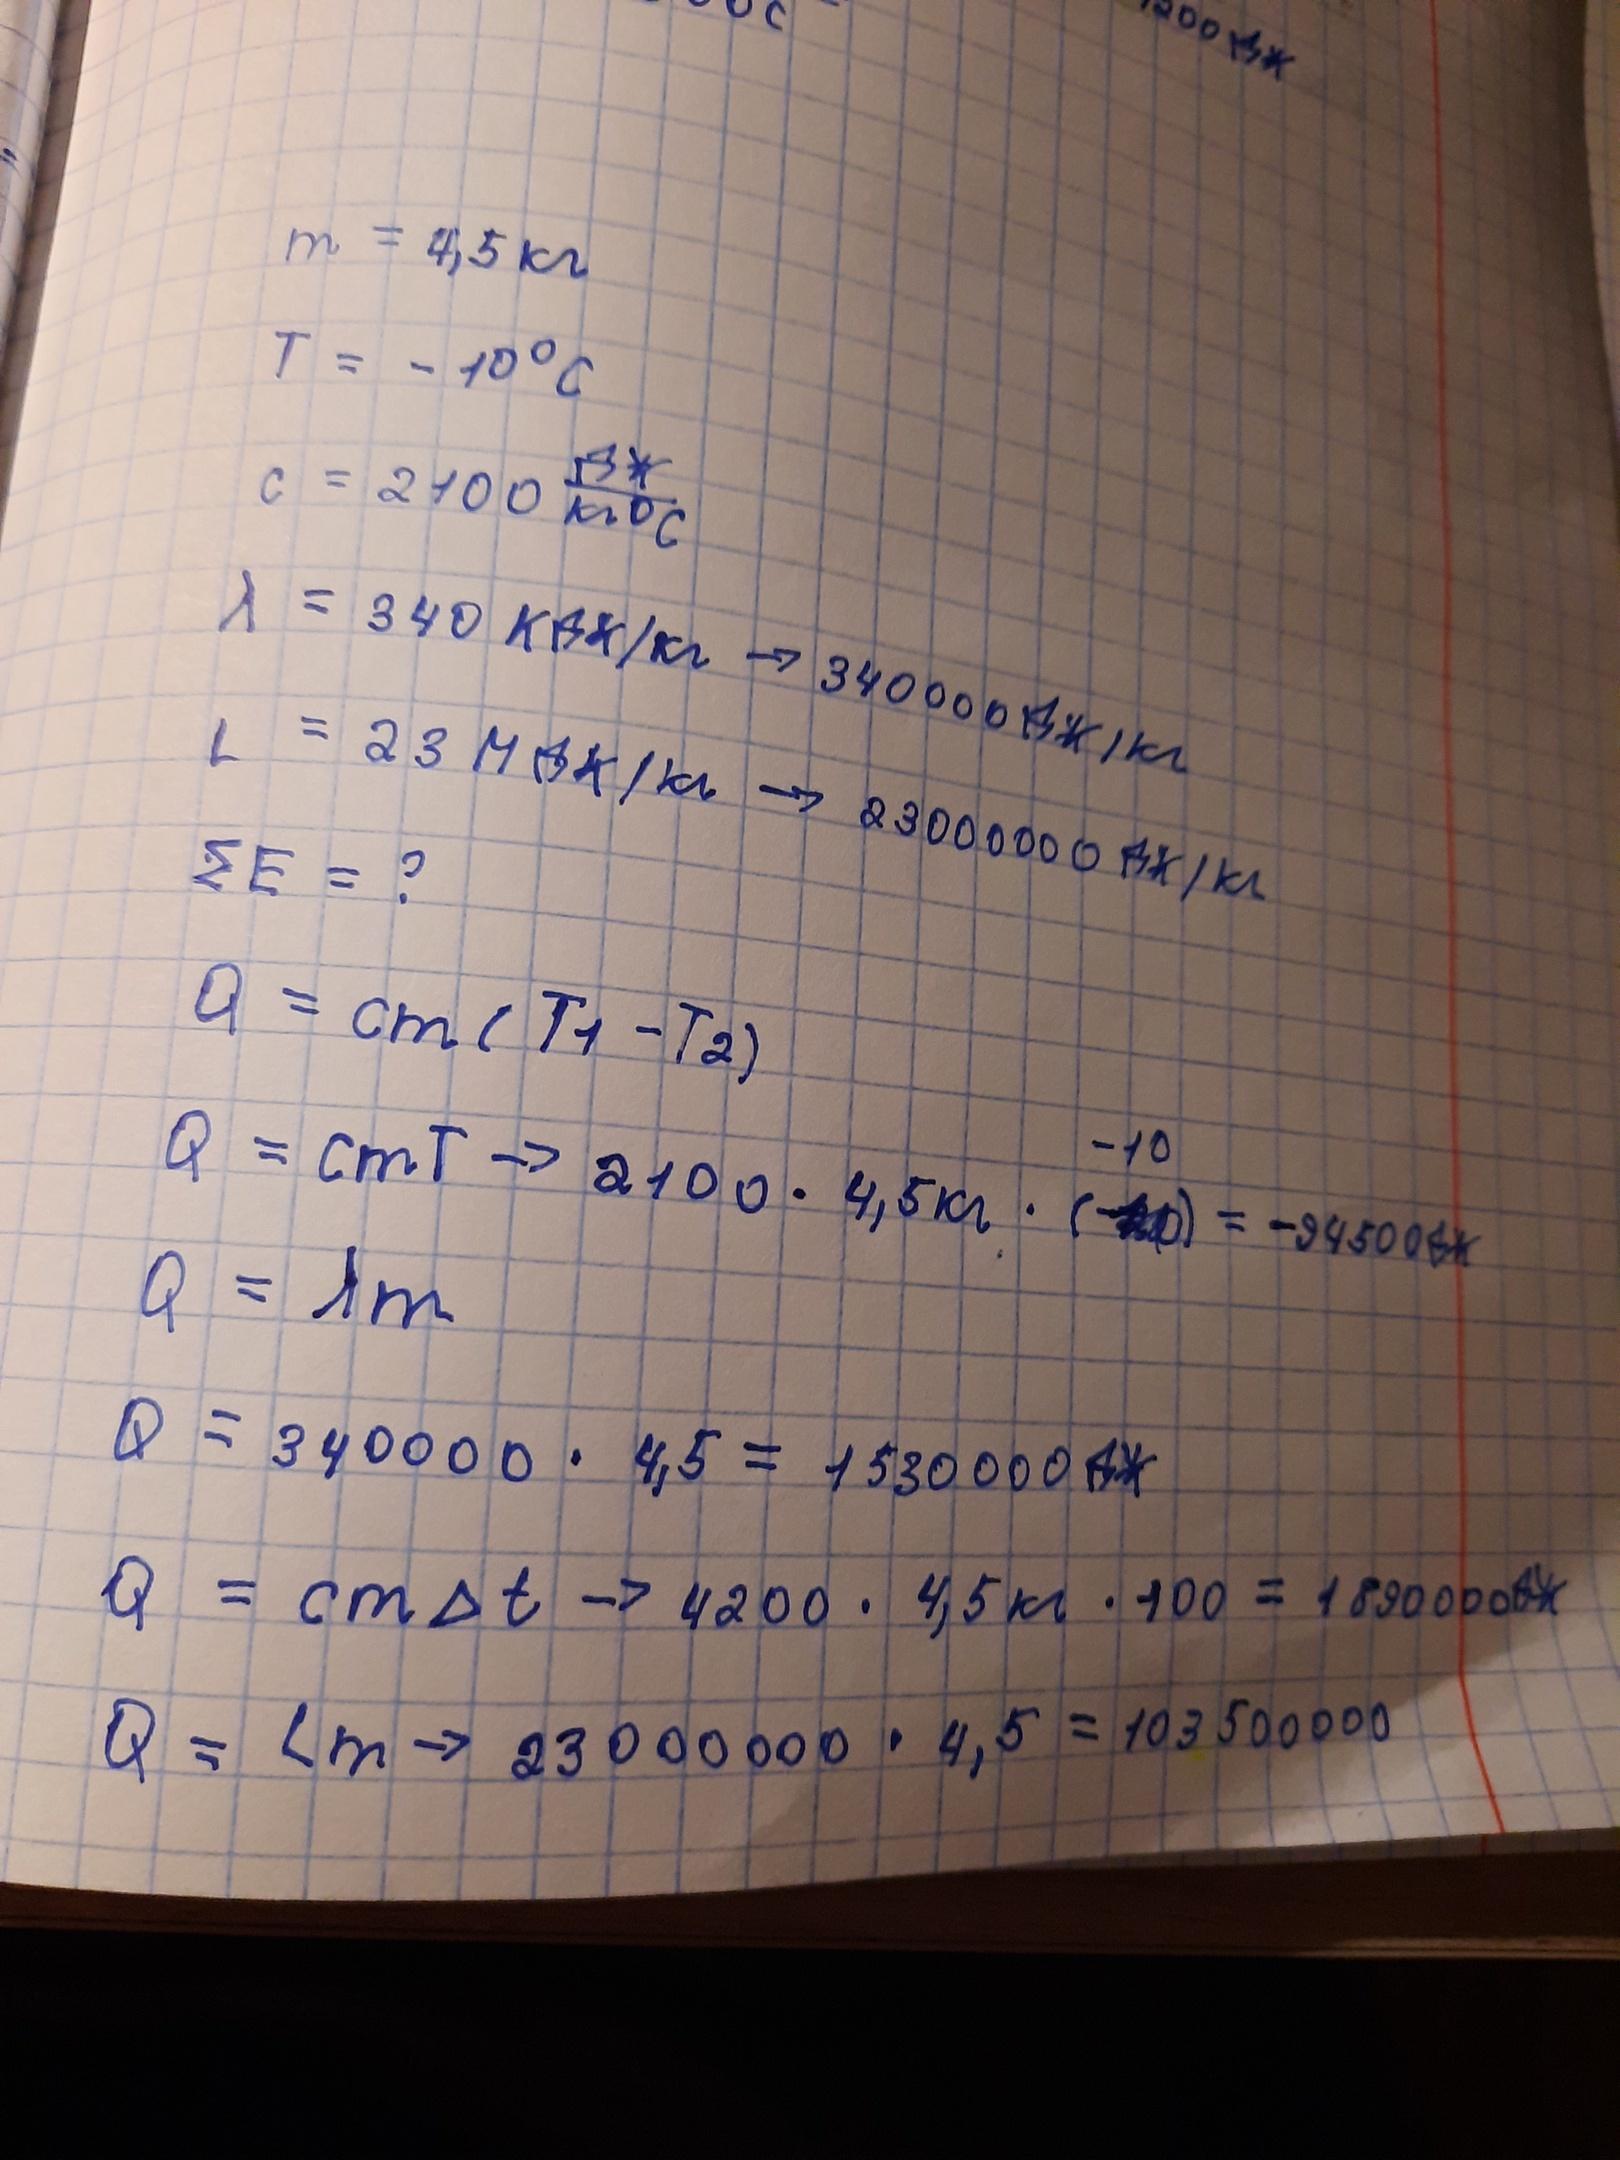 00C
1200 Дж
m = 4,5 кг
T = -10°C
c = 2100 Дж/кг°C
λ = 340 кДж/кг → 340000 Дж/кг
L = 23 МДж/кг → 23000000 Дж/кг
ΣE = ?
Q = cm(T1 - T2)
-10
Q = cmT → 2100 · 4,5кг · ( ) = -94500Дж
Q = λm
Q = 340000 · 4,5 = 1530000Дж
Q = cmΔt → 4200 · 4,5кг · 100 = 1890000Дж
Q = Lm → 23000000 · 4,5 = 103500000